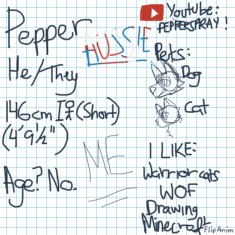 Pepper
HUSSIE
He/They
146cm
(Short)
(4'9½")
Age? No.
ME
Youtube:
PEPPERSPRAY!
Pets:
Dog
Cat
I LIKE:
Warrior cats
WOF
Drawing
Minecraft
FlipAnim